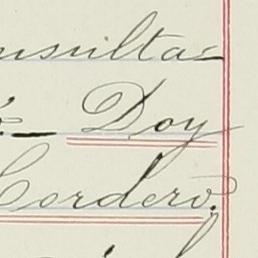 nsulta-
ó- Doy
Cordero.